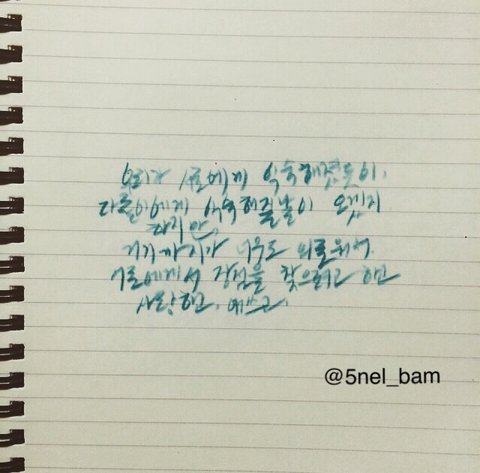 우리가 서로에게 익숙해졌듯이.
다른이에게 익숙해질날이 오겠지
하지만,
거기까지가 너무도 외로워서.
서로에게서 장점을 찾으려고 하고
사랑하고. 애쓰고.
@5nel_bam